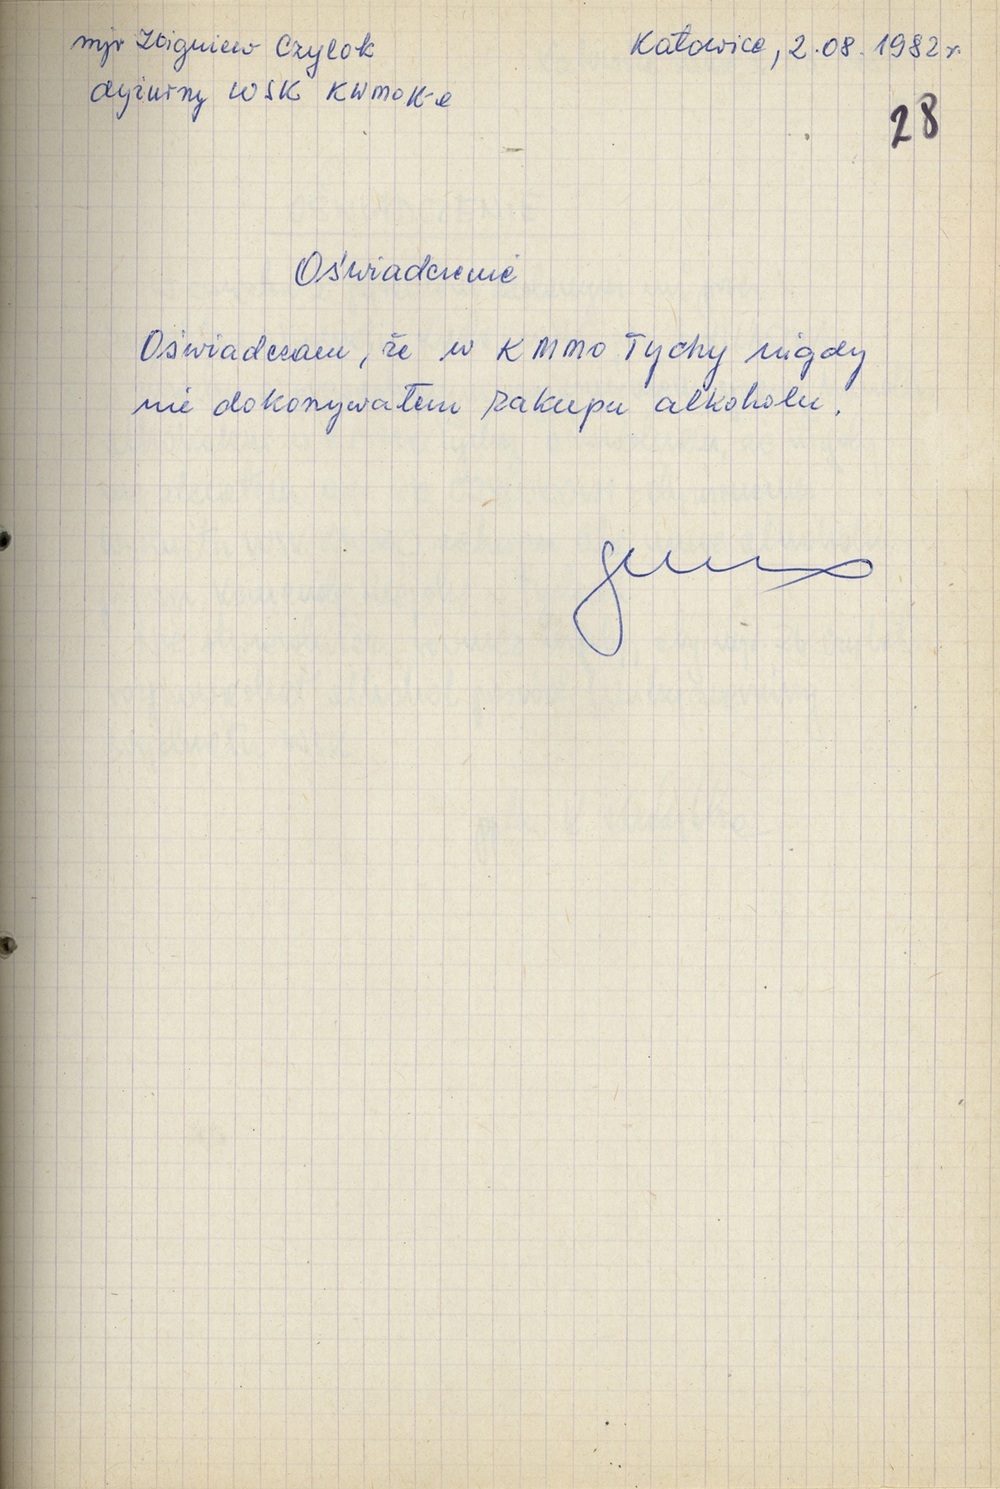 mjr Zbigniew Czylok
Katowice, 2.08.1982 r.
dyżurny WSK KWMO K-ce
28
Oświadczenie
Oświadczam, że w KMMO Tychy nigdy
nie dokonywałem zakupu alkoholu.